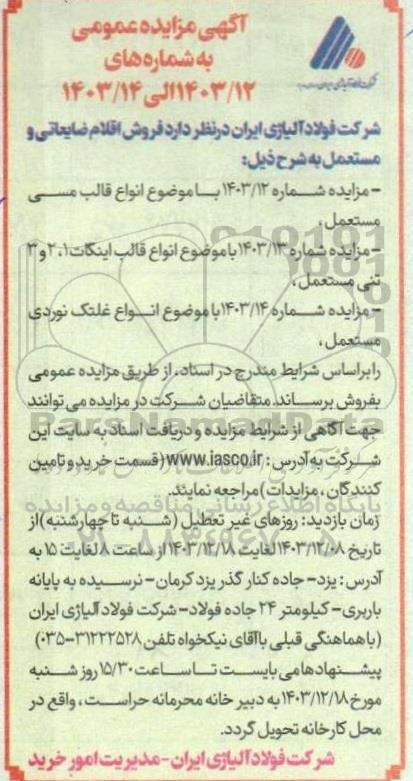 آگهی مزایده عمومی
به شماره‌های
۱۴۰۳/۱۲ الی ۱۴۰۳/۱۴
شرکت فولاد آلیاژی ایران درنظر دارد فروش اقلام ضایعاتی و
مستعمل به شرح ذیل:
- مزایده شماره ۱۴۰۳/۱۲ با موضوع انواع قالب مسی
مستعمل،
- مزایده شماره ۱۴۰۳/۱۳ با موضوع انواع قالب اینگات ۱، ۲ و ۳
تنی مستعمل،
- مزایده شماره ۱۴۰۳/۱۴ با موضوع انواع غلتک نوردی
مستعمل،
را براساس شرایط مندرج در اسناد، از طریق مزایده عمومی
بفروش برساند. متقاضیان شرکت در مزایده می توانند
جهت آگاهی از شرایط مزایده و دریافت اسناد به سایت این
شرکت به آدرس: www.iasco.ir (قسمت خرید و تامین
کنندگان، مزایدات) مراجعه نمایند.
زمان بازدید: روزهای غیر تعطیل (شنبه تا چهارشنبه) از
تاریخ ۱۴۰۳/۱۲/۰۸ لغایت ۱۴۰۳/۱۲/۱۸ از ساعت ۸ لغایت ۱۵ به
آدرس: یزد- جاده کنار گذر یزد کرمان- نرسیده به پایانه
باربری- کیلومتر ۲۴ جاده فولاد- شرکت فولاد آلیاژی ایران
(با هماهنگی قبلی با آقای نیکخواه تلفن ۳۱۲۲۲۵۲۸-۰۳۵)
پیشنهادها می بایست تا ساعت ۱۵/۳۰ روز شنبه
مورخ ۱۴۰۳/۱۲/۱۸ به دبیر خانه محرمانه حراست، واقع در
محل کارخانه تحویل گردد.
شرکت فولاد آلیاژی ایران - مدیریت امور خرید